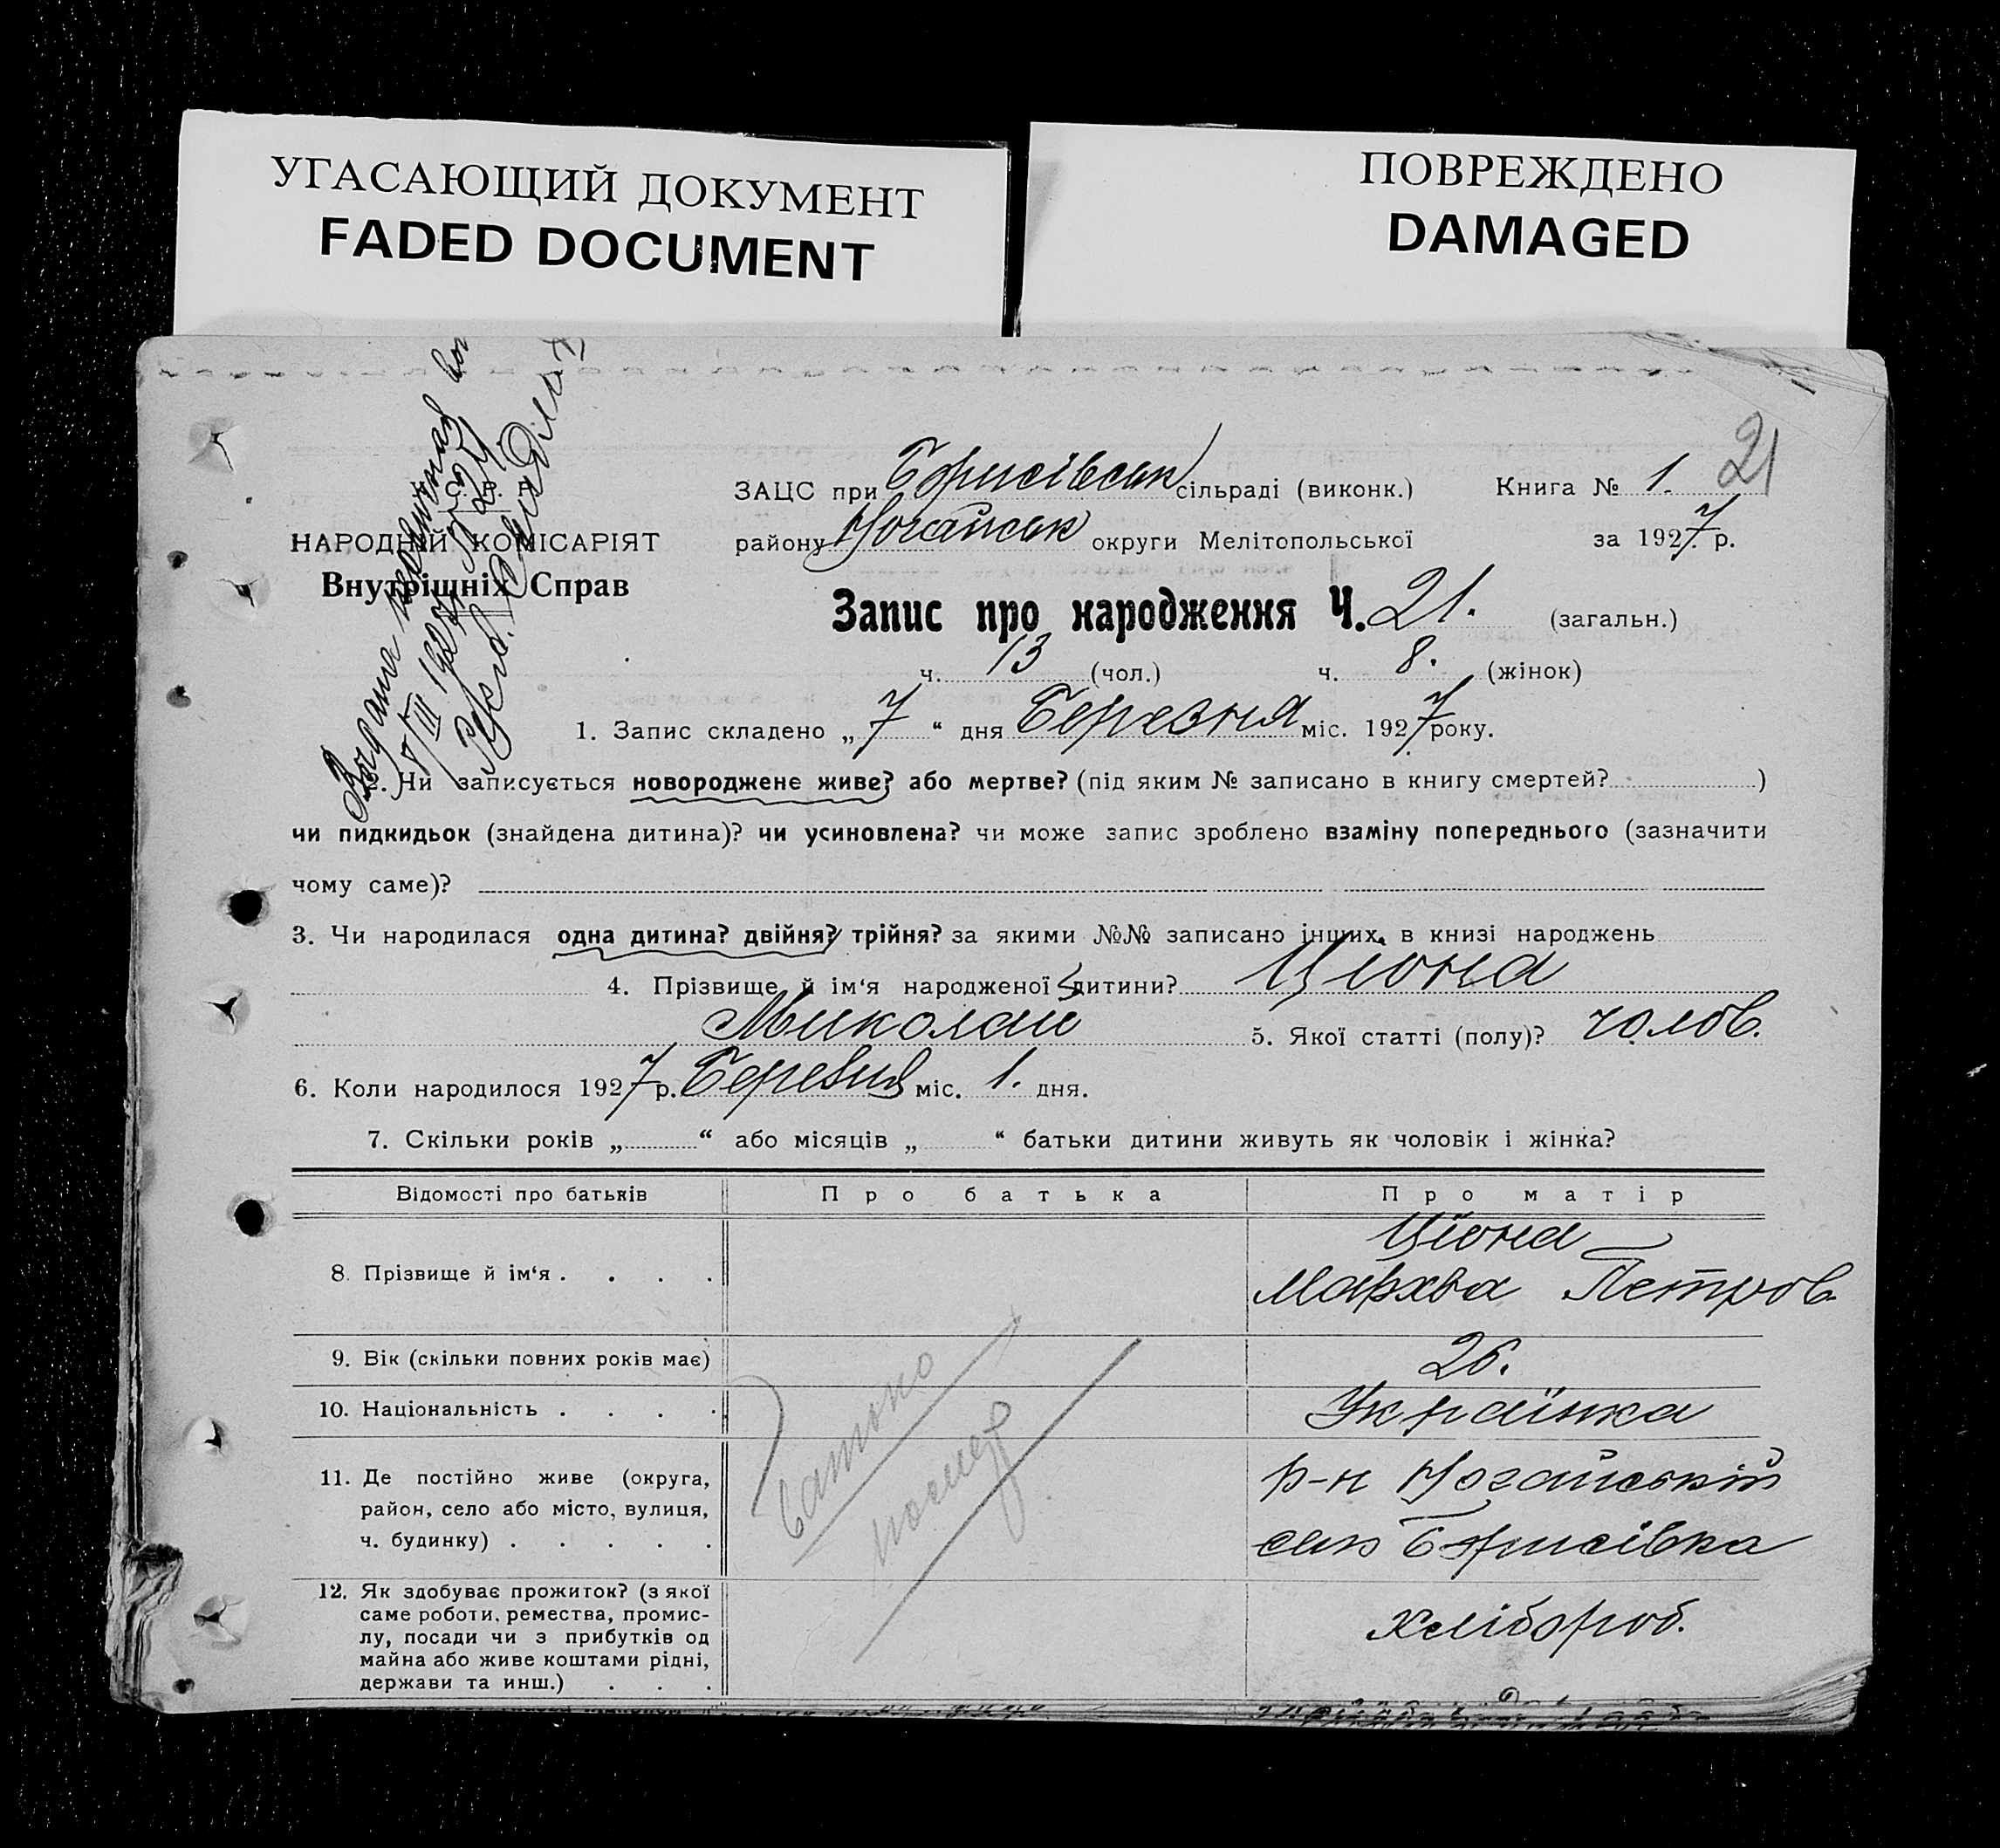 УГАСАЮЩИЙ ДОКУМЕНТ
FADED DOCUMENT
ПОВРЕЖДЕНО
DAMAGED
21
НАРОДНІЙ КОМІСАРІЯТ
Внутрішніх Справ
ЗАЦС при Борисівськ сільраді (виконк.) Книга № 1.
району Ногайськ округи Мелітопольської за 1927 р.
Запис про народження Ч. 21. (загальн.)
ч. 13 (чол.) ч. 8. (жінок)
1. Запис складено „7“ дня Березня міс. 1927 року.
Чи записується новороджене живе? або мертве? (під яким № записано в книгу смертей? )
чи пидкидьок (знайдена дитина)? чи усиновлена? чи може запис зроблено взаміну попереднього (зазначити
чому саме)?
3. Чи народилася одна дитина? двійня? трійня? за якими №№ записано інших в книзі народжень
4. Прізвище й ім‘я народженої дитини? Цюна
Миколай 5. Якої статті (полу)? чолов.
6. Коли народилося 1927 р. Березня міс. 1. дня.
7. Скільки років „ “ або місяців „ “ батьки дитини живуть як чоловік і жінка?
Відомості про батьків Про батька Про матір
8. Прізвище й ім‘я . . . . Цюна
Мархва Петров.
9. Вік (скільки повних років має) 26.
10. Національність . . . . Українка
11. Де постійно живе (округа,
район, село або місто, вулиця,
ч. будинку) . . . . .
р-н Ногайській
село Борисівка
батько
помер
12. Як здобуває прожиток? (з якої
саме роботи, ремества, промис-
лу, посади чи з прибутків од
майна або живе коштами рідні,
держави та инш.) . . .
хлібороб.